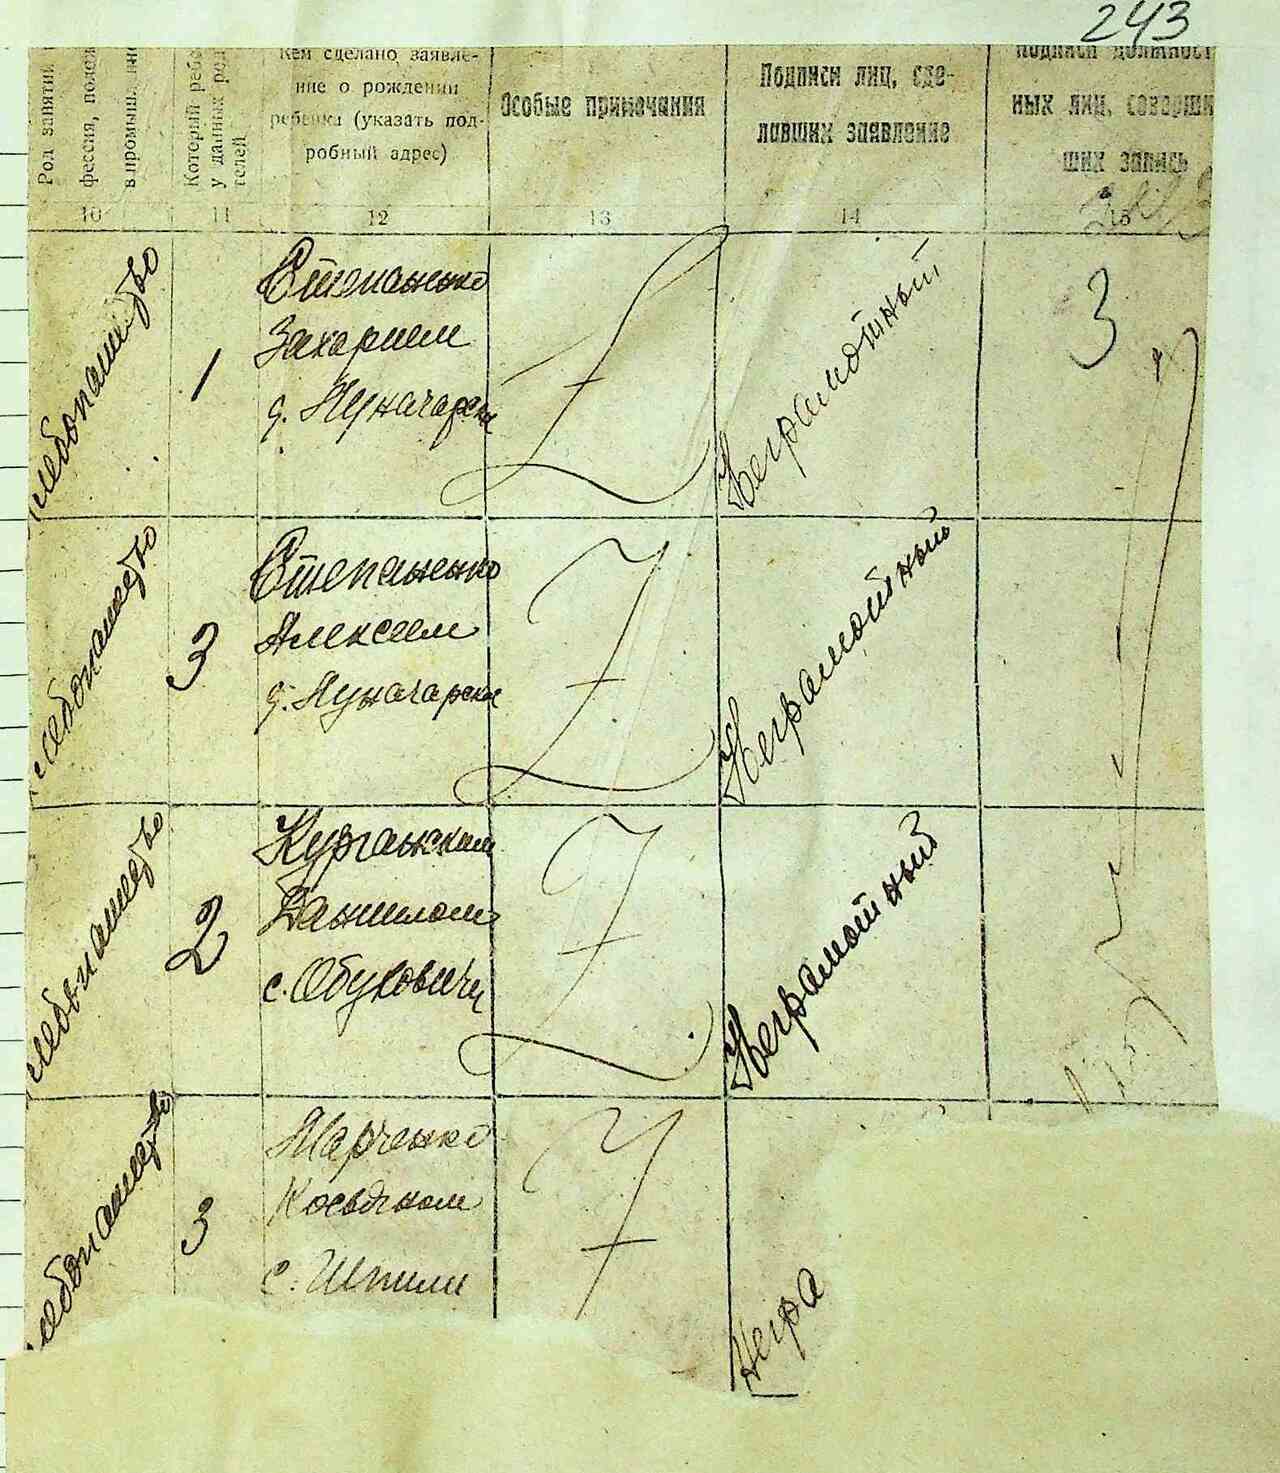 243
Род занятий
фессия, полож
в промышл. ине
Который ребе
у данных род
телей
Кем сделано заявле-
ние о рождении
ребенка (указать под-
робный адрес)
Особые примечания
Подписи лиц, сде-
лавших заявление
Подписи должност
ных лиц, соверши
ших запись
10 11 12 13 14 15
хлебопашество
1
Степаненко
Захарием
д. Луначарск
Неграмотный
3
хлебопашество
3
Степаненко
Алексеем
д. Луначарск
Неграмотный
хлебопашество
2
Курганским
Данилом
с. Обуховичи
Неграмотный
хлебопашество
3
Марченко
Косьяном
с. Шпили
Негра